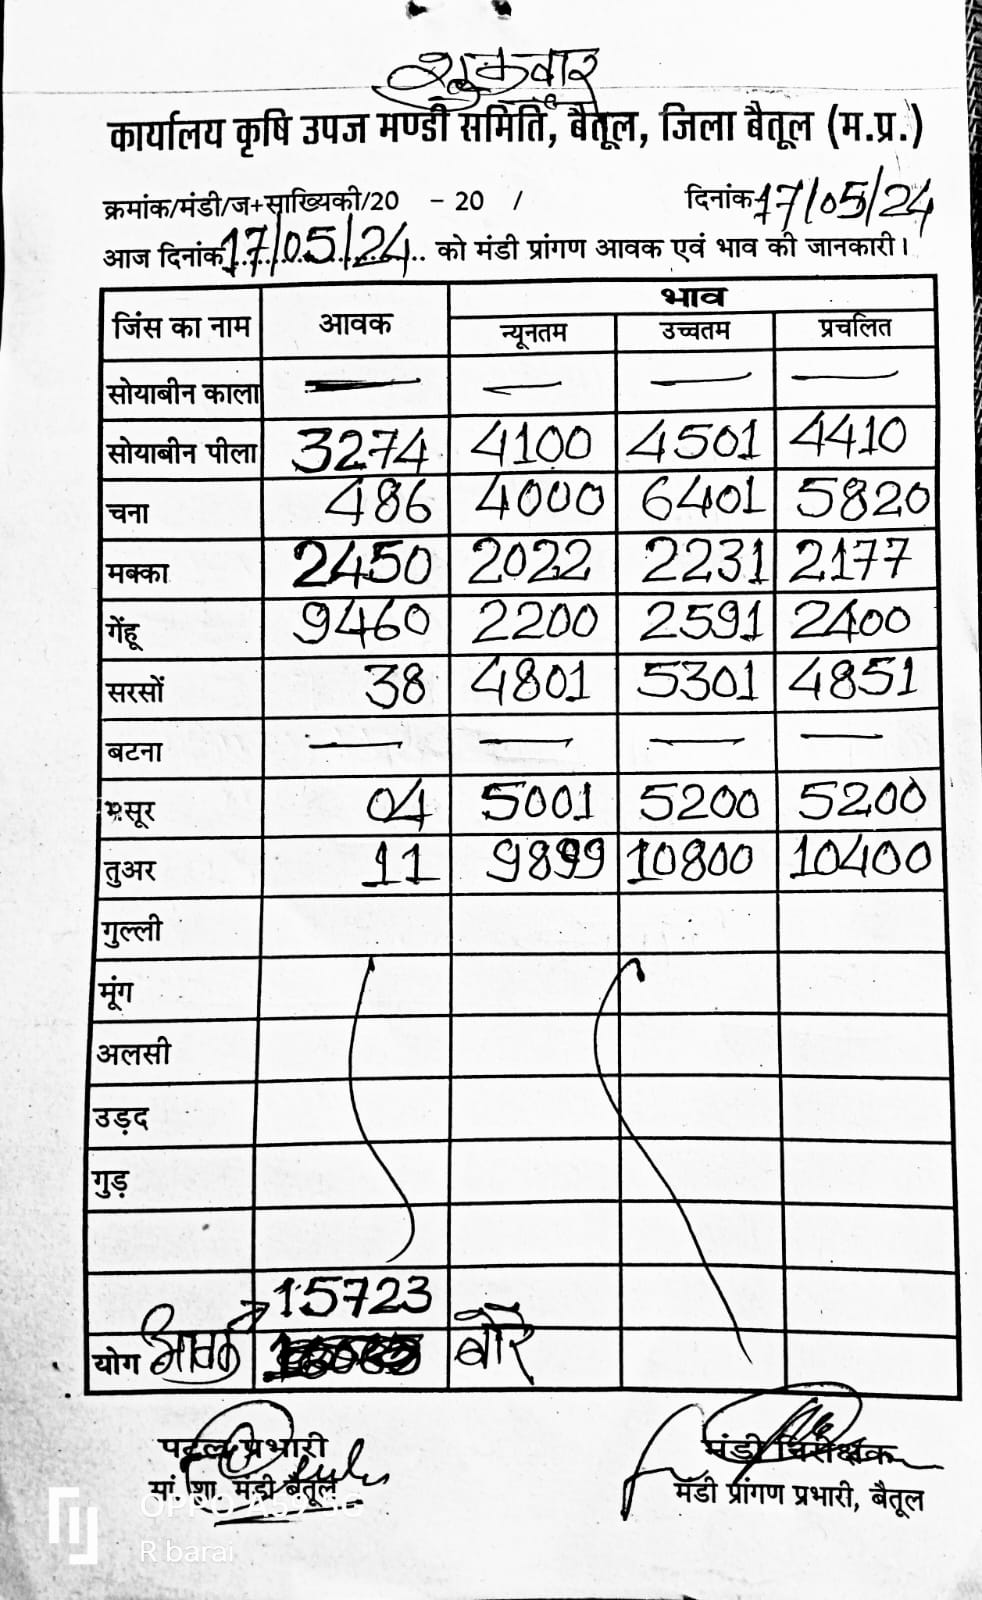 शुक्रवार
कार्यालय कृषि उपज मण्डी समिति, बैतूल, जिला बैतूल (म.प्र.)
क्रमांक/मंडी/ज+साख्यिकी/20 - 20 / दिनांक 17/05/24
आज दिनांक 17/05/24 को मंडी प्रांगण आवक एवं भाव की जानकारी।
जिंस का नाम आवक भाव
न्यूनतम उच्चतम प्रचलित
सोयाबीन काला — — — —
सोयाबीन पीला 3274 4100 4501 4410
चना 486 4000 6401 5820
मक्का 2450 2022 2231 2177
गेंहू 9460 2200 2591 2400
सरसों 38 4801 5301 4851
बटना — — — —
मसूर 04 5001 5200 5200
तुअर 11 9899 10800 10400
गुल्ली
मूंग
अलसी
उड़द
गुड़
15723
योग आवक बोरे
प्रभारी मंडी निरीक्षक
मां. शा. मंडी बैतूल मंडी प्रांगण प्रभारी, बैतूल
OPPO A59 5G
R barai